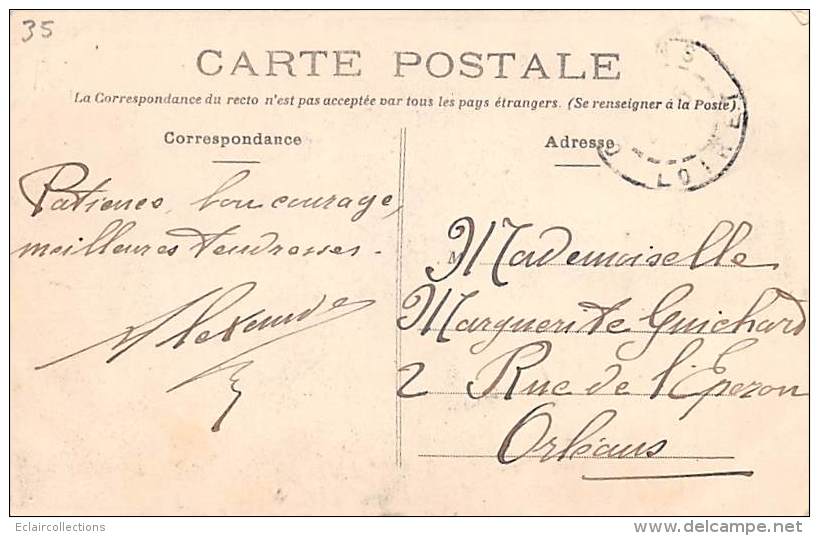 35
CARTE POSTALE
La Correspondance du recto n'est pas acceptée par tous les pays étrangers. (Se renseigner à la Poste).
Correspondance
Adresse
LOIRET
Patience, bon courage,
meilleures tendresses.
Alexandre
M
Mademoiselle
Marguerite Guichard
2 Rue de l'Eperon
Orléans
Eclaircollections
delcampe.net